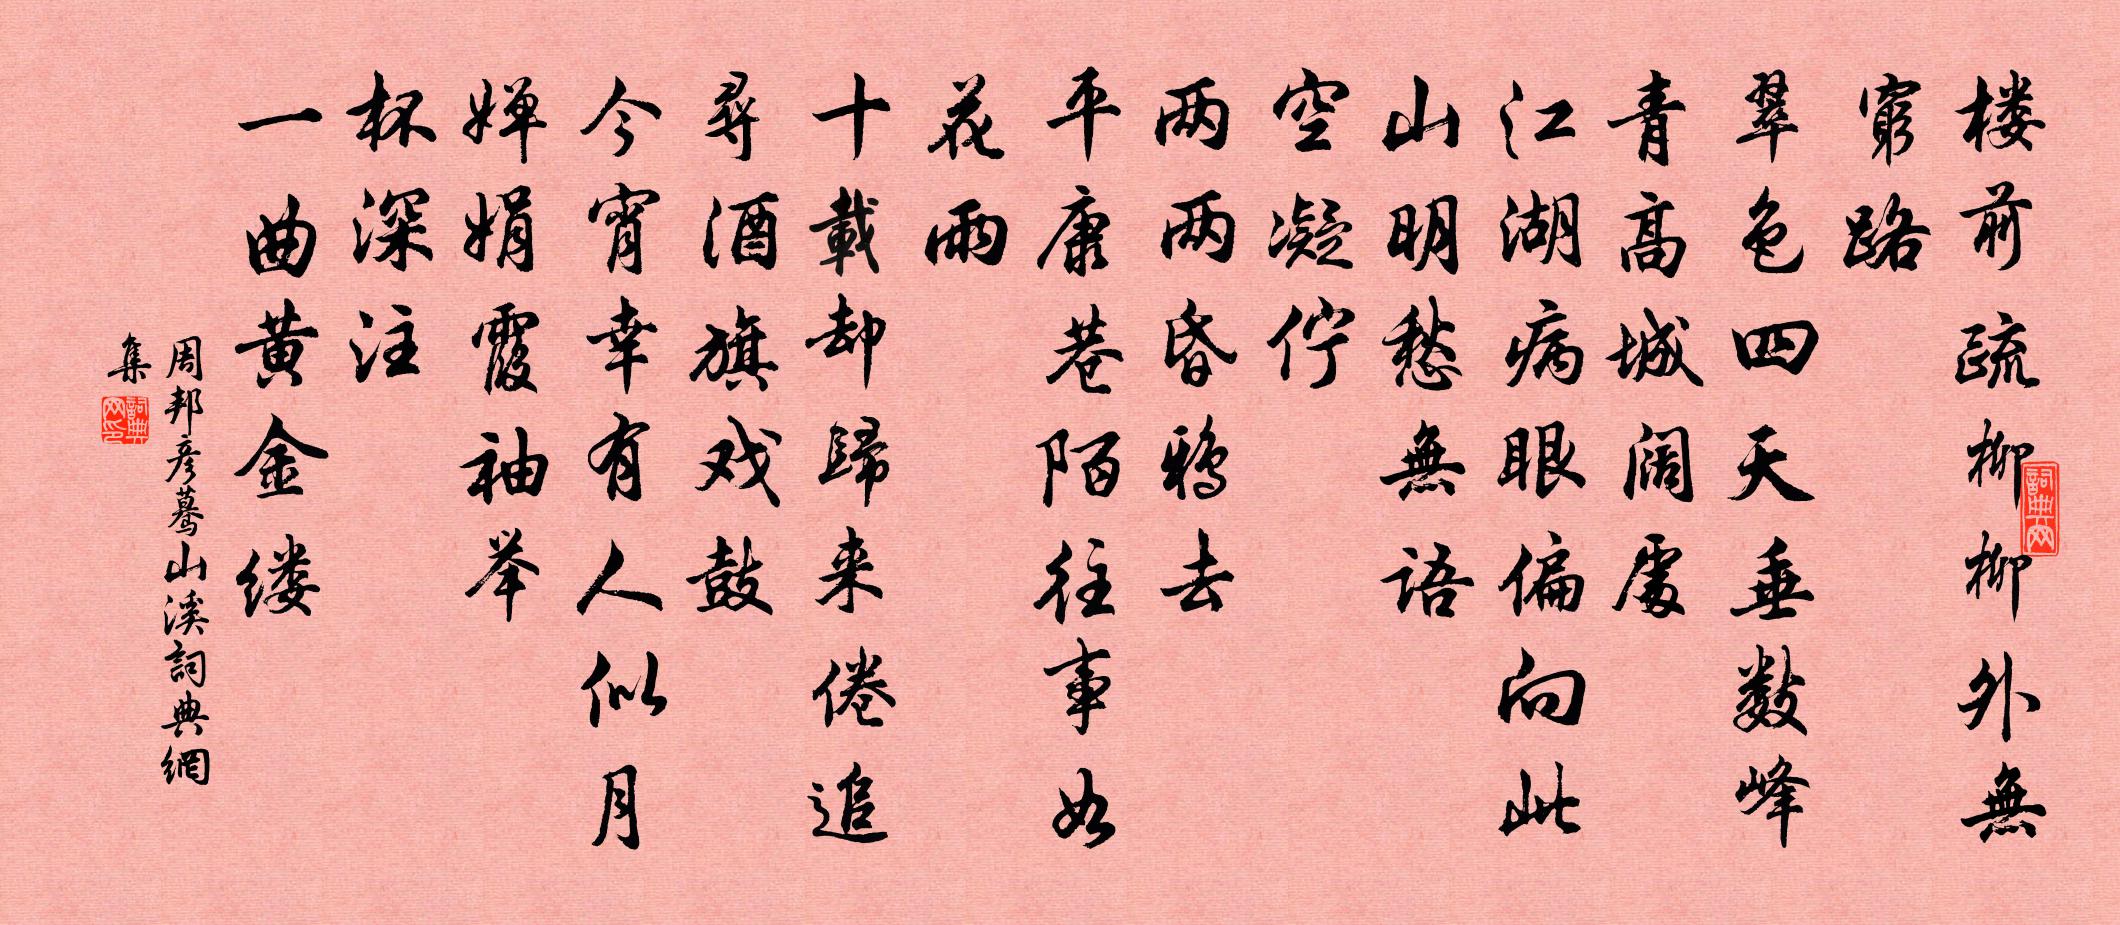 楼前疏柳柳外無
窮路
翠色四天垂数峰
青高城阔處
江湖病眼偏向此
山明愁無語
空凝伫
两两昏鸦去
平康巷陌往事如
花雨
十載却歸来倦追
尋酒旗戏鼓
今宵幸有人似月
婵娟霞袖举
杯深注
一曲黄金缕
周邦彦驀山溪詞典網
集
詞典网
詞典网印